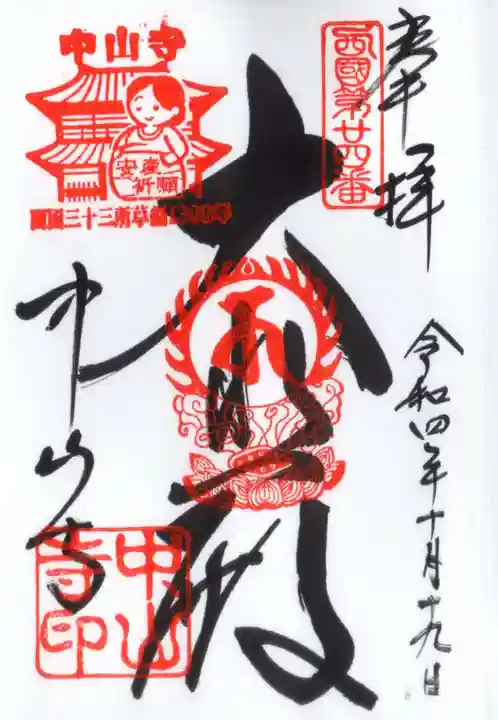 奉拝
西國第廿四番
令和四年十月十九日
大悲殿
中山寺
中山寺
安産
祈願
西国三十三所草創1300年
中山寺印